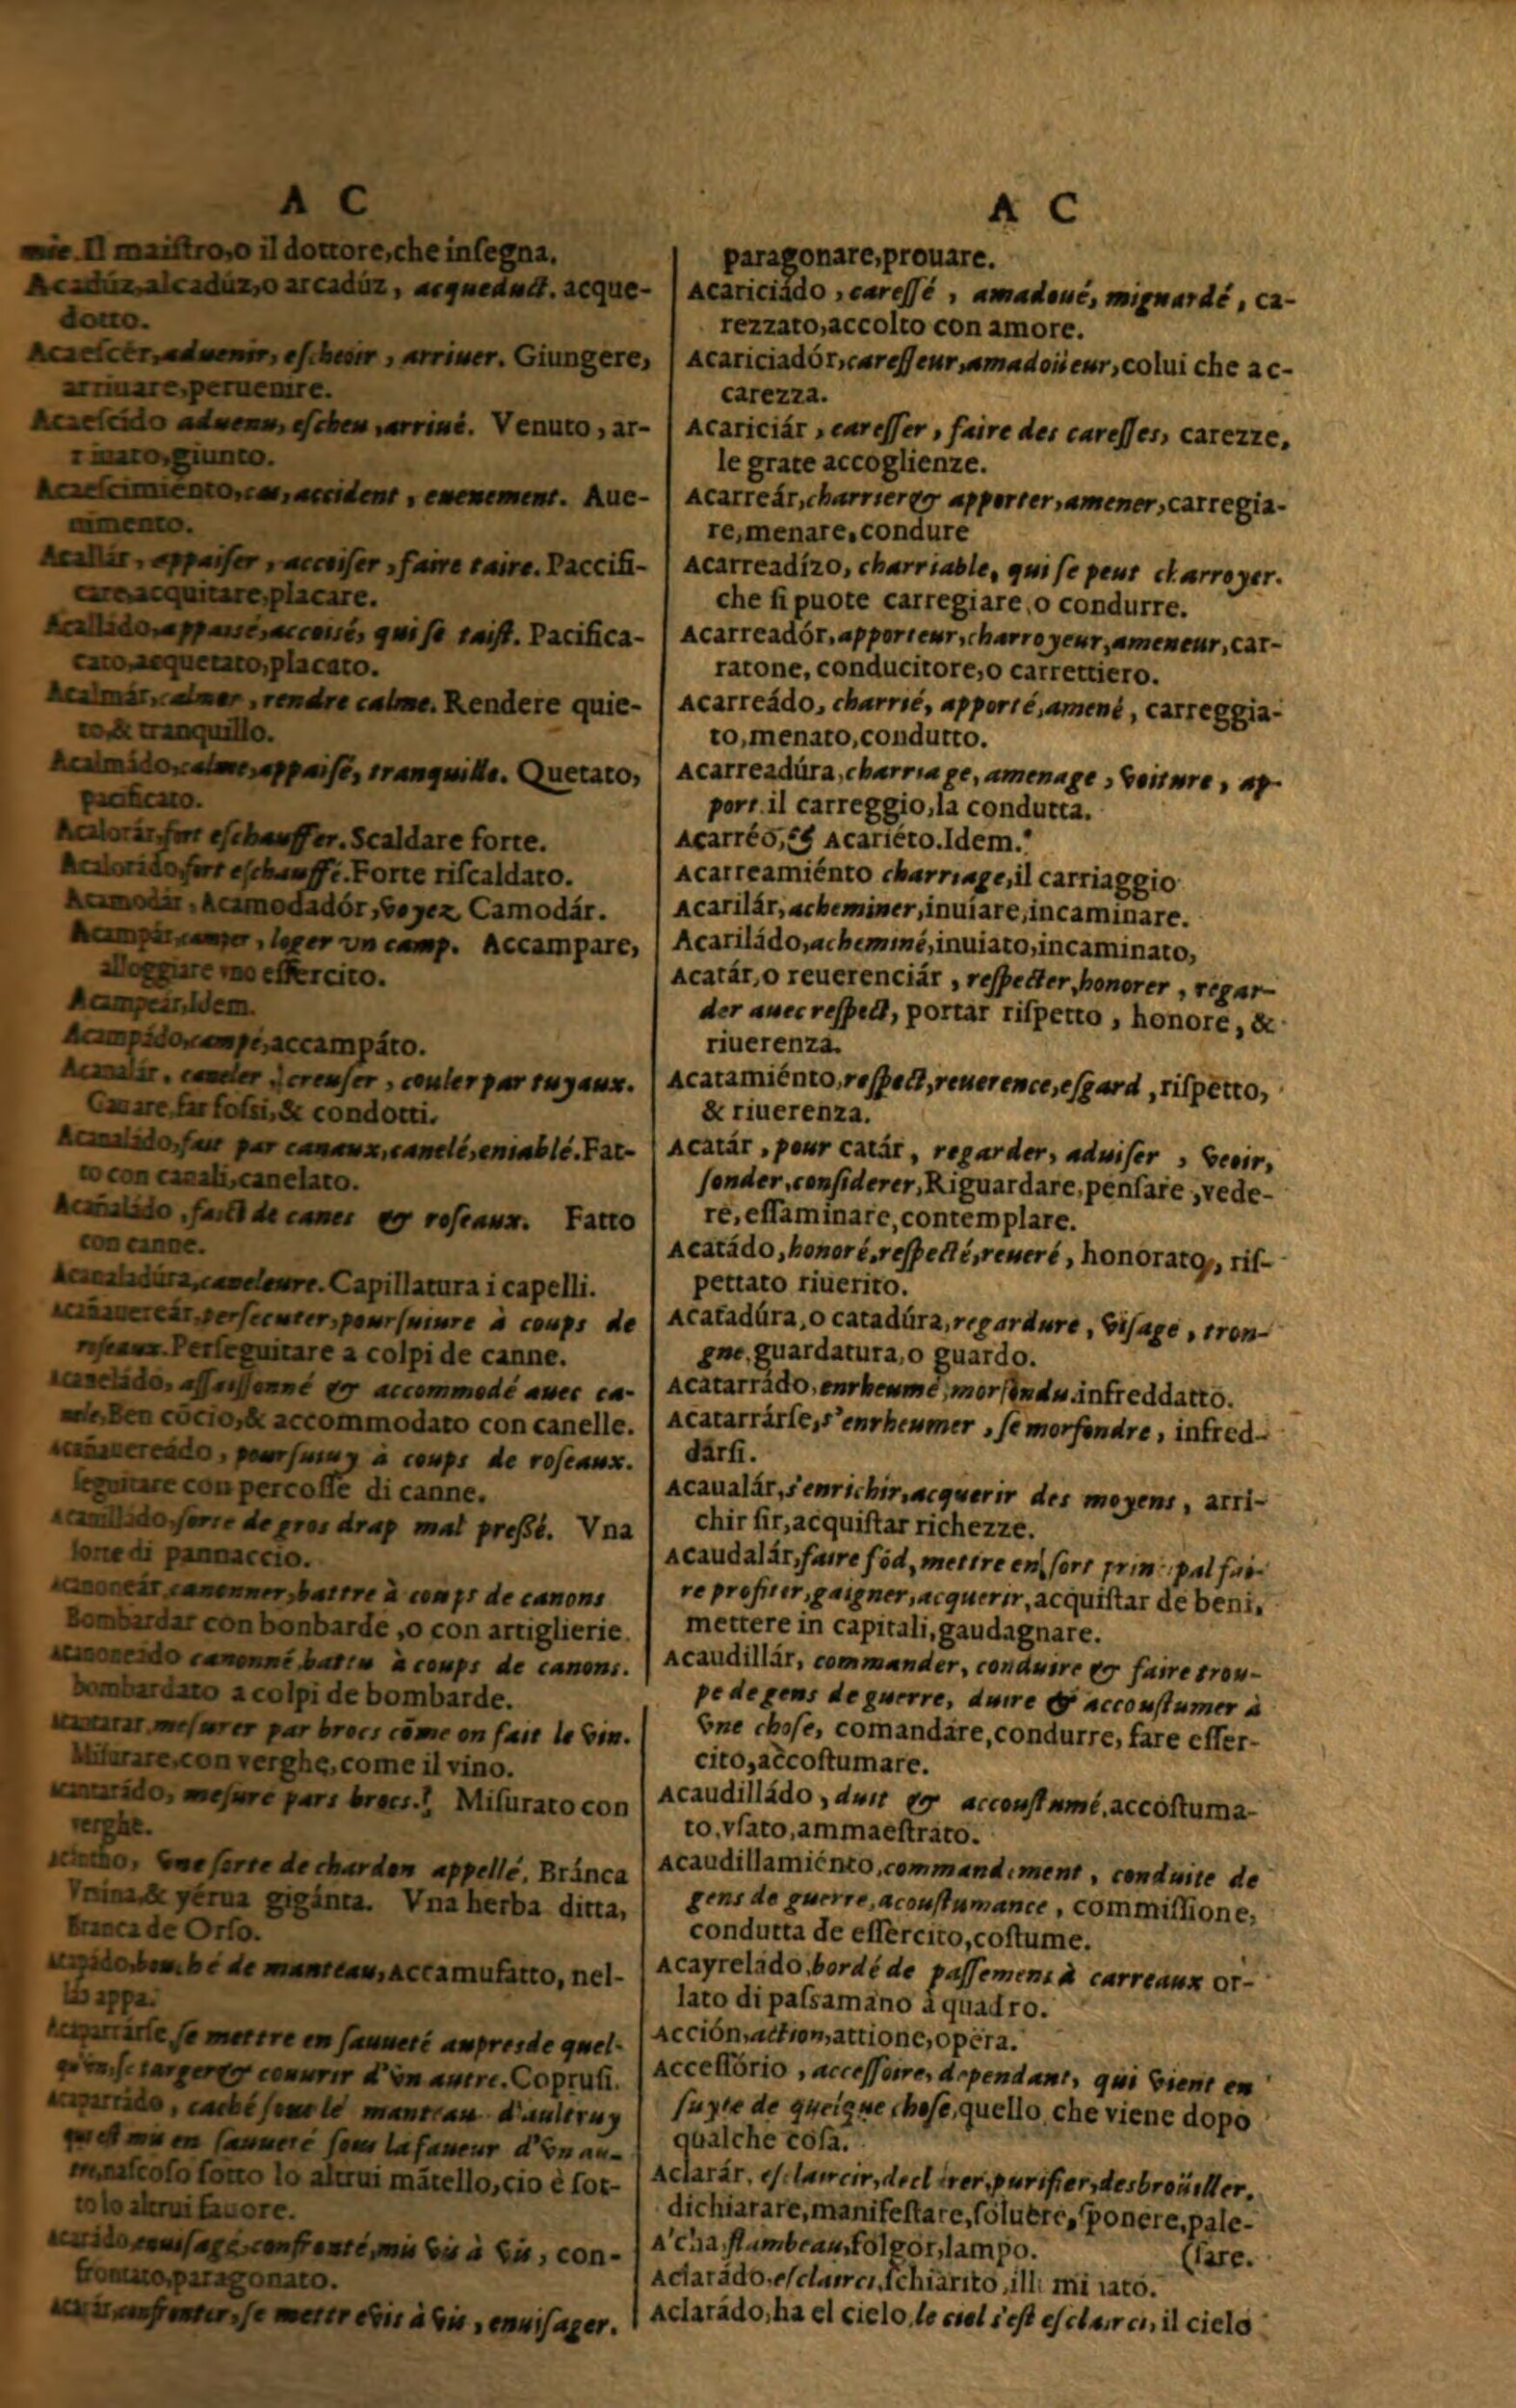 A C
mie. Il maiſtro,o il dottore,che inſegna.
Acadúz,alcadúz,o arcadúz, acqueduct. acque-
dotto.
Acaeſcér,aduenir, eſcheoir, arriuer. Giungere,
arriuare,peruenire.
Acaeſcido aduenu, eſcheu,arriué. Venuto, ar-
riuato,giunto.
Acaeſcimiénto,cas,accident, euenement. Aue-
nimento.
Acallár, appaiſer, accoiſer, faire taire. Paccifi-
care,acquitare,placare.
Acalládo,appaisé,accoisé, qui ſe taiſt. Pacifica-
cato,acquetato,placato.
Acalmár,calmer, rendre calme. Rendere quie-
to,& tranquillo.
Acalmádo,calme,appaiſé, tranquille. Quetato,
pacificato.
Acalorár,fort eſchauffer. Scaldare forte.
Acalorádo,fort eſchauffé. Forte riſcaldato.
Acamodár, Acamodadór, voyez Camodár.
Acampár,camper, loger vn camp. Accampare,
alloggiare vno eſſercito.
Acampeár,Idem.
Acampádo,campé,accampáto.
Acanalár, caneler, creuſer, couler par tuyaux.
Cauare,far foſsi,& condotti.
Acanaládo,fait par canaux,canelé,eniablé. Fat-
to con canali,canelato.
Acañaládo, faict de canes & roſeaux. Fatto
con canne.
Acanaladúra,caneleure. Capillatura i capelli.
Acañauereár,perſecuter,pourſuiure à coups de
roſeaux. Perſeguitare a colpi de canne.
Acaneládo, aſſaiſſonné & accommodé auec ca-
nele,Ben cōcio,& accommodato con canelle.
Acañauereádo, pourſuiuy à coups de roſeaux.
ſeguitare con percoſſe di canne.
Acanilládo,ſorte de gros drap mal preßé. Vna
ſorte di pannaccio.
Acanoneár,canonner,battre à coups de canons
Bombardar con bonbarde,o con artiglierie.
Acanoneádo canonné,battu à coups de canons.
bombardato a colpi de bombarde.
Acantarár,meſurer par brocs cōme on fait le vin.
Miſurare,con verghe,come il vino.
Acantarádo, meſuré pars brocs. Miſurato con
verghe.
Acántho, vne ſorte de chardon appellé, Bránca
Vrſina,& yérua gigánta. Vna herba ditta,
Branca de Orſo.
Acapádo,bombé de manteau,Accamufatto, nel-
la appa.
Acaparrárſe,ſe mettre en ſauueté aupres de quel-
qu'vn,ſe targer & couurir d'vn autre. Copruſi.
Acaparrádo, caché ſous le manteau d'aultruy
qui eſt mis en ſauueté ſous la faueur d'vn au-
tre,naſcoſo ſotto lo altrui mātello,cio è ſot-
to lo altrui fauore.
Acarádo,enuiſagé,confronté,mis vis à vis, con-
frontato,paragonato.
Acarár,confronter,ſe mettre vis à vis, enuiſager.
A C
paragonare,prouare.
Acariciádo, careſſé, amadoué, mignardé, ca-
rezzato,accolto con amore.
Acariciadór,careſſeur,amadoüeur,colui che ac-
carezza.
Acariciár, careſſer, faire des careſſes, carezze,
le grate accoglienze.
Acarreár,charrier & apporter,amener,carregia-
re,menare,condure
Acarreadízo, charriable, qui ſe peut charroyer.
che ſi puote carregiare,o condurre.
Acarreadór,apporteur,charroyeur,ameneur,car-
ratone, conducitore,o carrettiero.
Acarreádo, charrié, apporté,amené, carreggia-
to,menato,condutto.
Acarreadúra,charriage,amenage, voiture, ap-
port.il carreggio,la condutta.
Acarréo,& Acariéto.Idem.
Acarreamiénto charriage,il carriaggio
Acarilár,acheminer,inuiare,incaminare.
Acariládo,acheminé,inuiato,incaminato,
Acatár,o reuerenciár, reſpecter,honorer, regar-
der auec reſpect, portar riſpetto, honore, &
riuerenza.
Acatamiénto,reſpect,reuerence,eſgard, riſpetto,
& riuerenza.
Acatár, pour catár, regarder, aduiſer, veoir,
ſonder,conſiderer,Riguardare,penſare,vede-
re,eſſaminare,contemplare.
Acatádo,honoré,reſpecté,reueré, honorato, riſ-
pettato riuerito.
Acatadúra,o catadúra,regardure, viſage, tron-
gne.guardatura,o guardo.
Acatarrádo,enrheumé,morfondu.infreddatto.
Acatarrárſe,s'enrheumer, ſe morfondre, infred-
darſi.
Acaualár,s'enrichir,acquerir des moyens, arri-
chir ſir,acquiſtar richezze.
Acaudalár,faire fōd, mettre en ſort principal fai-
re profiter,gaigner,acquerir,acquiſtar de beni,
mettere in capitali,gaudagnare.
Acaudillár, commander, conduire & faire trou-
pe de gens de guerre, duire & accouſtumer à
vne choſe, comandare,condurre, fare eſſer-
cito,accoſtumare.
Acaudilládo, duit & accouſtumé,accoſtuma-
to,vſato,ammaeſtrato.
Acaudillamiénto,commandement, conduite de
gens de guerre,acouſtumance, commiſſione,
condutta de eſſercito,coſtume.
Acayreládo,bordé de paſſemens à carreaux or-
lato di paſsamano à quadro.
Acción,action,attione,opera.
Acceſſório, acceſſoire, dependant, qui vient en
ſuyte de quelque choſe,quello che viene dopo
qualche coſa.
Aclarár, eſclaircir,declarer,purifier,desbroüiller.
dichiarare,manifeſtare,ſoluere,ſponere,pale-
A'cha,flambeau,folgor,lampo. (ſare.
Aclarádo,eſclairci,ſchiarito,illuminato.
Aclarádo,ha el cielo,le ciel s'eſt eſclairci, il cielo